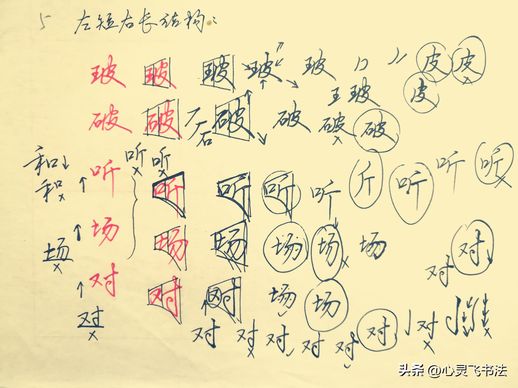 5 左短右长结构:
玻 玻 玻 玻 玻 皮 皮
王 玻 皮
破 破 石 破 破 破 破
和 和 听 听
听 听 听 听 听 斤 听 听 听
场 场 场 场 场 场 场
对 对 对 对 场 场 对 对
对 对 对 对 对 对 对 对
头条 @心灵飞书法